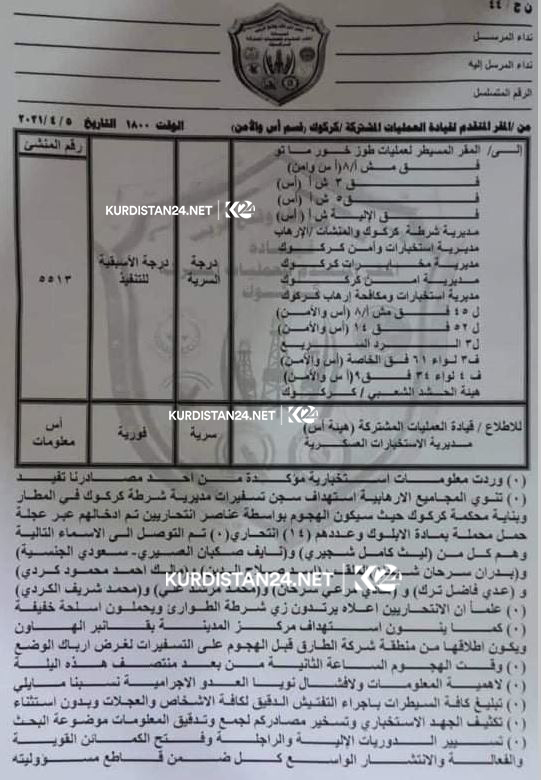 ن ج / ٤٤
نداء المرسل
نداء المرسل إليه
الرقم المتسلسل
من /المقر المتقدم لقيادة العمليات المشتركة /كركوك (قسم أس والأمن) الوقت ١٨٠٠ التاريخ ٥ /٤ /٢٠٢١
رقم المنشئ
إلى/ المقر المسيطر لعمليات طوز خورماتو
فق مش /٨(أس وأمن)
فق ٣ ش أ (أس)
فق٥ ش أ (أس)
فق الإلية ش أ (أس)
مديرية شرطة كركوك والمنشات /الإرهاب
مديرية إستخبارات وأمن كركوك
مديرية مخابرات كركوك
مديرية امن كركوك
مديرية استخبارات ومكافحة إرهاب كركوك
ل ٤٥ فق مش /٨ (أس والأمن)
ل ٥٢ فق ١٤ (أس والأمن)
ل٣ الرد السريع
ف٣ لواء ٦١ فق الخاصة (أس والأمن)
ف ٤ لواء ٣٤ فق٩ (أس والأمن)
هيئة الحشد الشعبي / كركوك
درجة السرية
درجة الأسبقية للتنفيذ
٥٥١٣
KURDISTAN24.NET K24
للاطلاع / قيادة العمليات المشتركة (هيئة أس)
مديرية الاستخبارات العسكرية
سرية
فورية
أس معلومات
KURDISTAN24.NET K24
(٠) وردت معلومات استخبارية مؤكدة من احد مصادرنا تفيد
(٠) تنوي المجاميع الارهابية استهداف سجن تسفيرات مديرية شرطة كركوك في المطار
وبناية محكمة كركوك حيث سيكون الهجوم بواسطة عناصر انتحاريين تم ادخالهم عبر عجلة
حمل محملة بمادة الابلوك وعددهم (١٤) انتحاري(٠) تم التوصل الى الاسماء التالية
وهم كل من (ليث كامل شجيري) و(نايف صكبان العصيري- سعودي الجنسية)
و(بدران سرحان احمد محمود كردي)
و (عدي فاضل ترك) و سرحان) و(محمد مرشد علي) و(محمد شريف الكردي)
KURDISTAN24.NET K24
(٠) علماً إن الانتحاريين اعلاه يرتدون زي شرطة الطوارئ ويحملون اسلحة خفيفة
(٠) كما ينون استهداف مركز المدينة بقنابر الهاون
ويكون اطلاقها من منطقة شركة الطارق قبل الهجوم على التسفيرات لغرض ارباك الوضع
(٠) وقت الهجوم الساعة الثانية من بعد منتصف هذه اليلة
(٠) لاهمية المعلومات ولافشال نوايا العدو الاجرامية نسبنا مايلي
(٠) تبليغ كافة السيطرات باجراء التفتيش الدقيق لكافة الاشخاص والعجلات وبدون استثناء
(٠) تكثيف الجهد الاستخباري وتسخير مصادركم لجمع وتدقيق المعلومات موضوعة البحث
(٠) تسيير الدوريات الإلية والراجلة وفتح الكمائن القوية
والفعالة والانتشار الواسع كل ضمن قاطع مسؤوليته